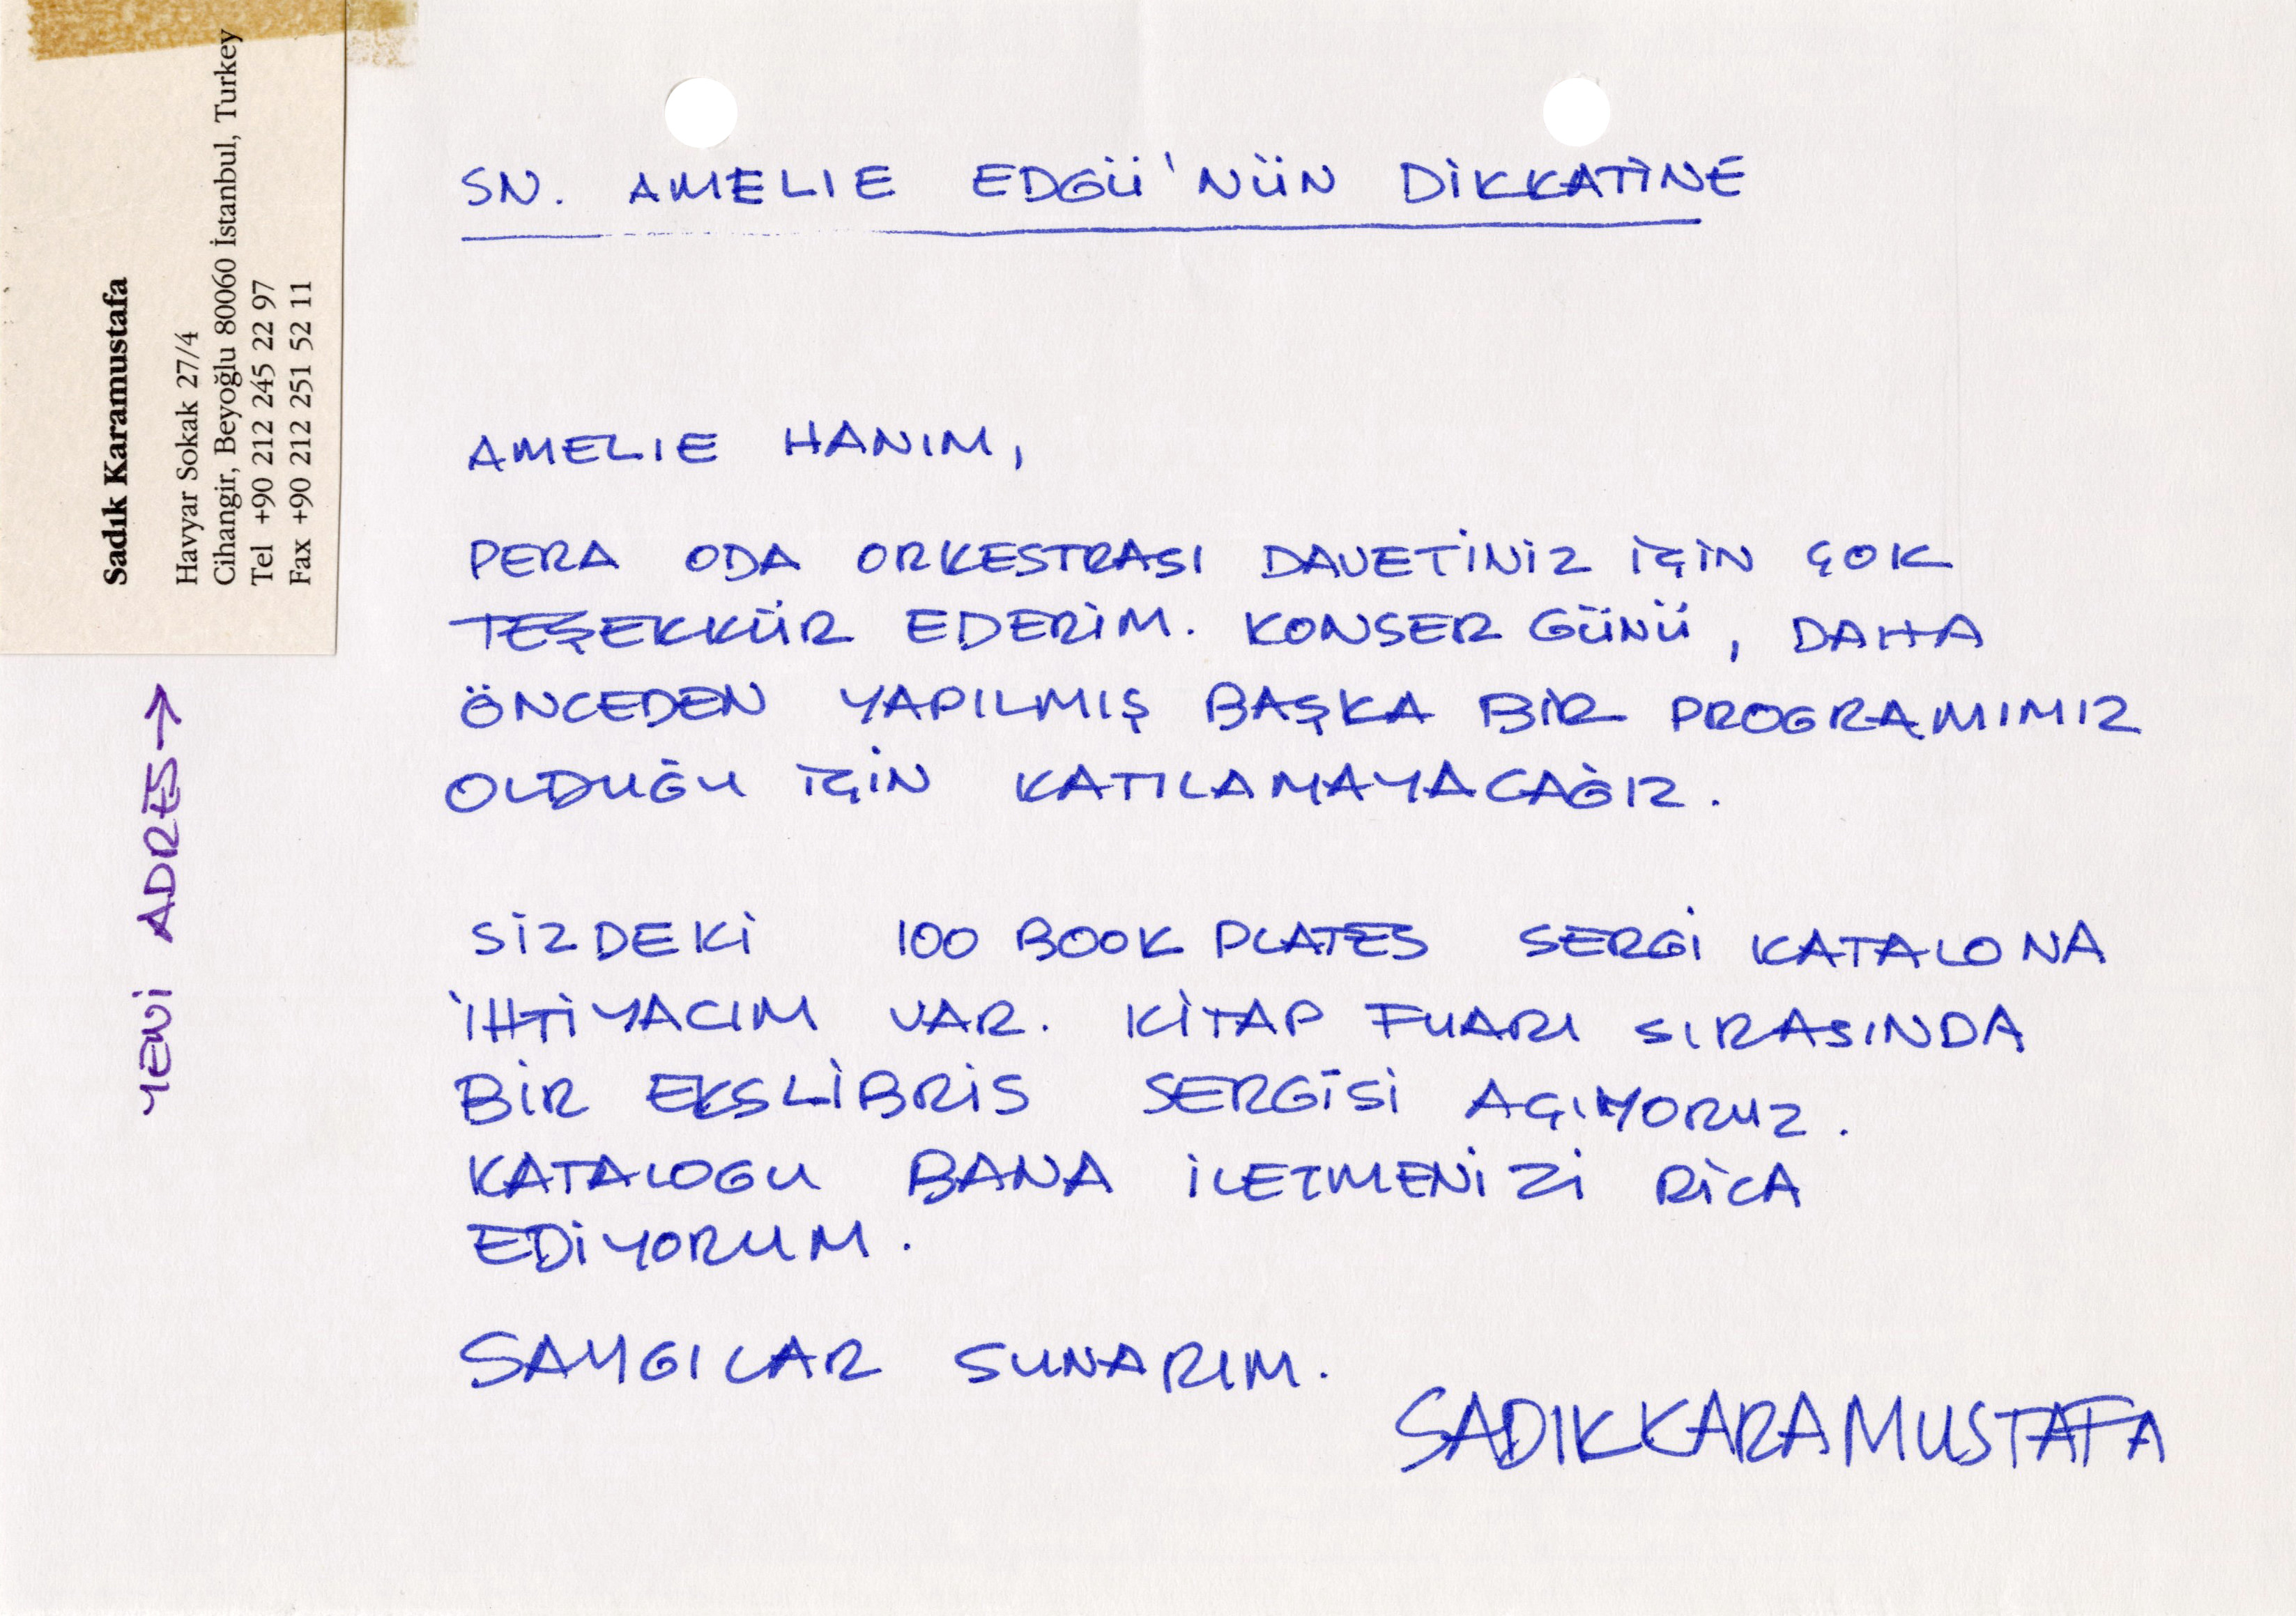 Sadık Karamustafa
Havyar Sokak 27/4
Cihangir, Beyoğlu 80060 İstanbul, Turkey
Tel +90 212 245 22 97
Fax +90 212 251 52 11
YENİ ADRES →
SN. AMELIE EDGÜ'NÜN DİKKATİNE
AMELIE HANIM,
PERA ODA ORKESTRASI DAVETİNİZ İÇİN ÇOK
TEŞEKKÜR EDERİM. KONSER GÜNÜ, DAHA
ÖNCEDEN YAPILMIŞ BAŞKA BİR PROGRAMIMIZ
OLDUĞU İÇİN KATILAMAYACAĞIZ.
SİZDEKİ 100 BOOK PLATES SERGİ KATALONA
İHTİYACIM VAR. KİTAP FUARI SIRASINDA
BİR EKSLİBRİS SERGİSİ AÇIYORUZ.
KATALOGU BANA İLETMENİZİ RİCA
EDİYORUM.
SAYGILAR SUNARIM.
SADIK KARAMUSTAFA